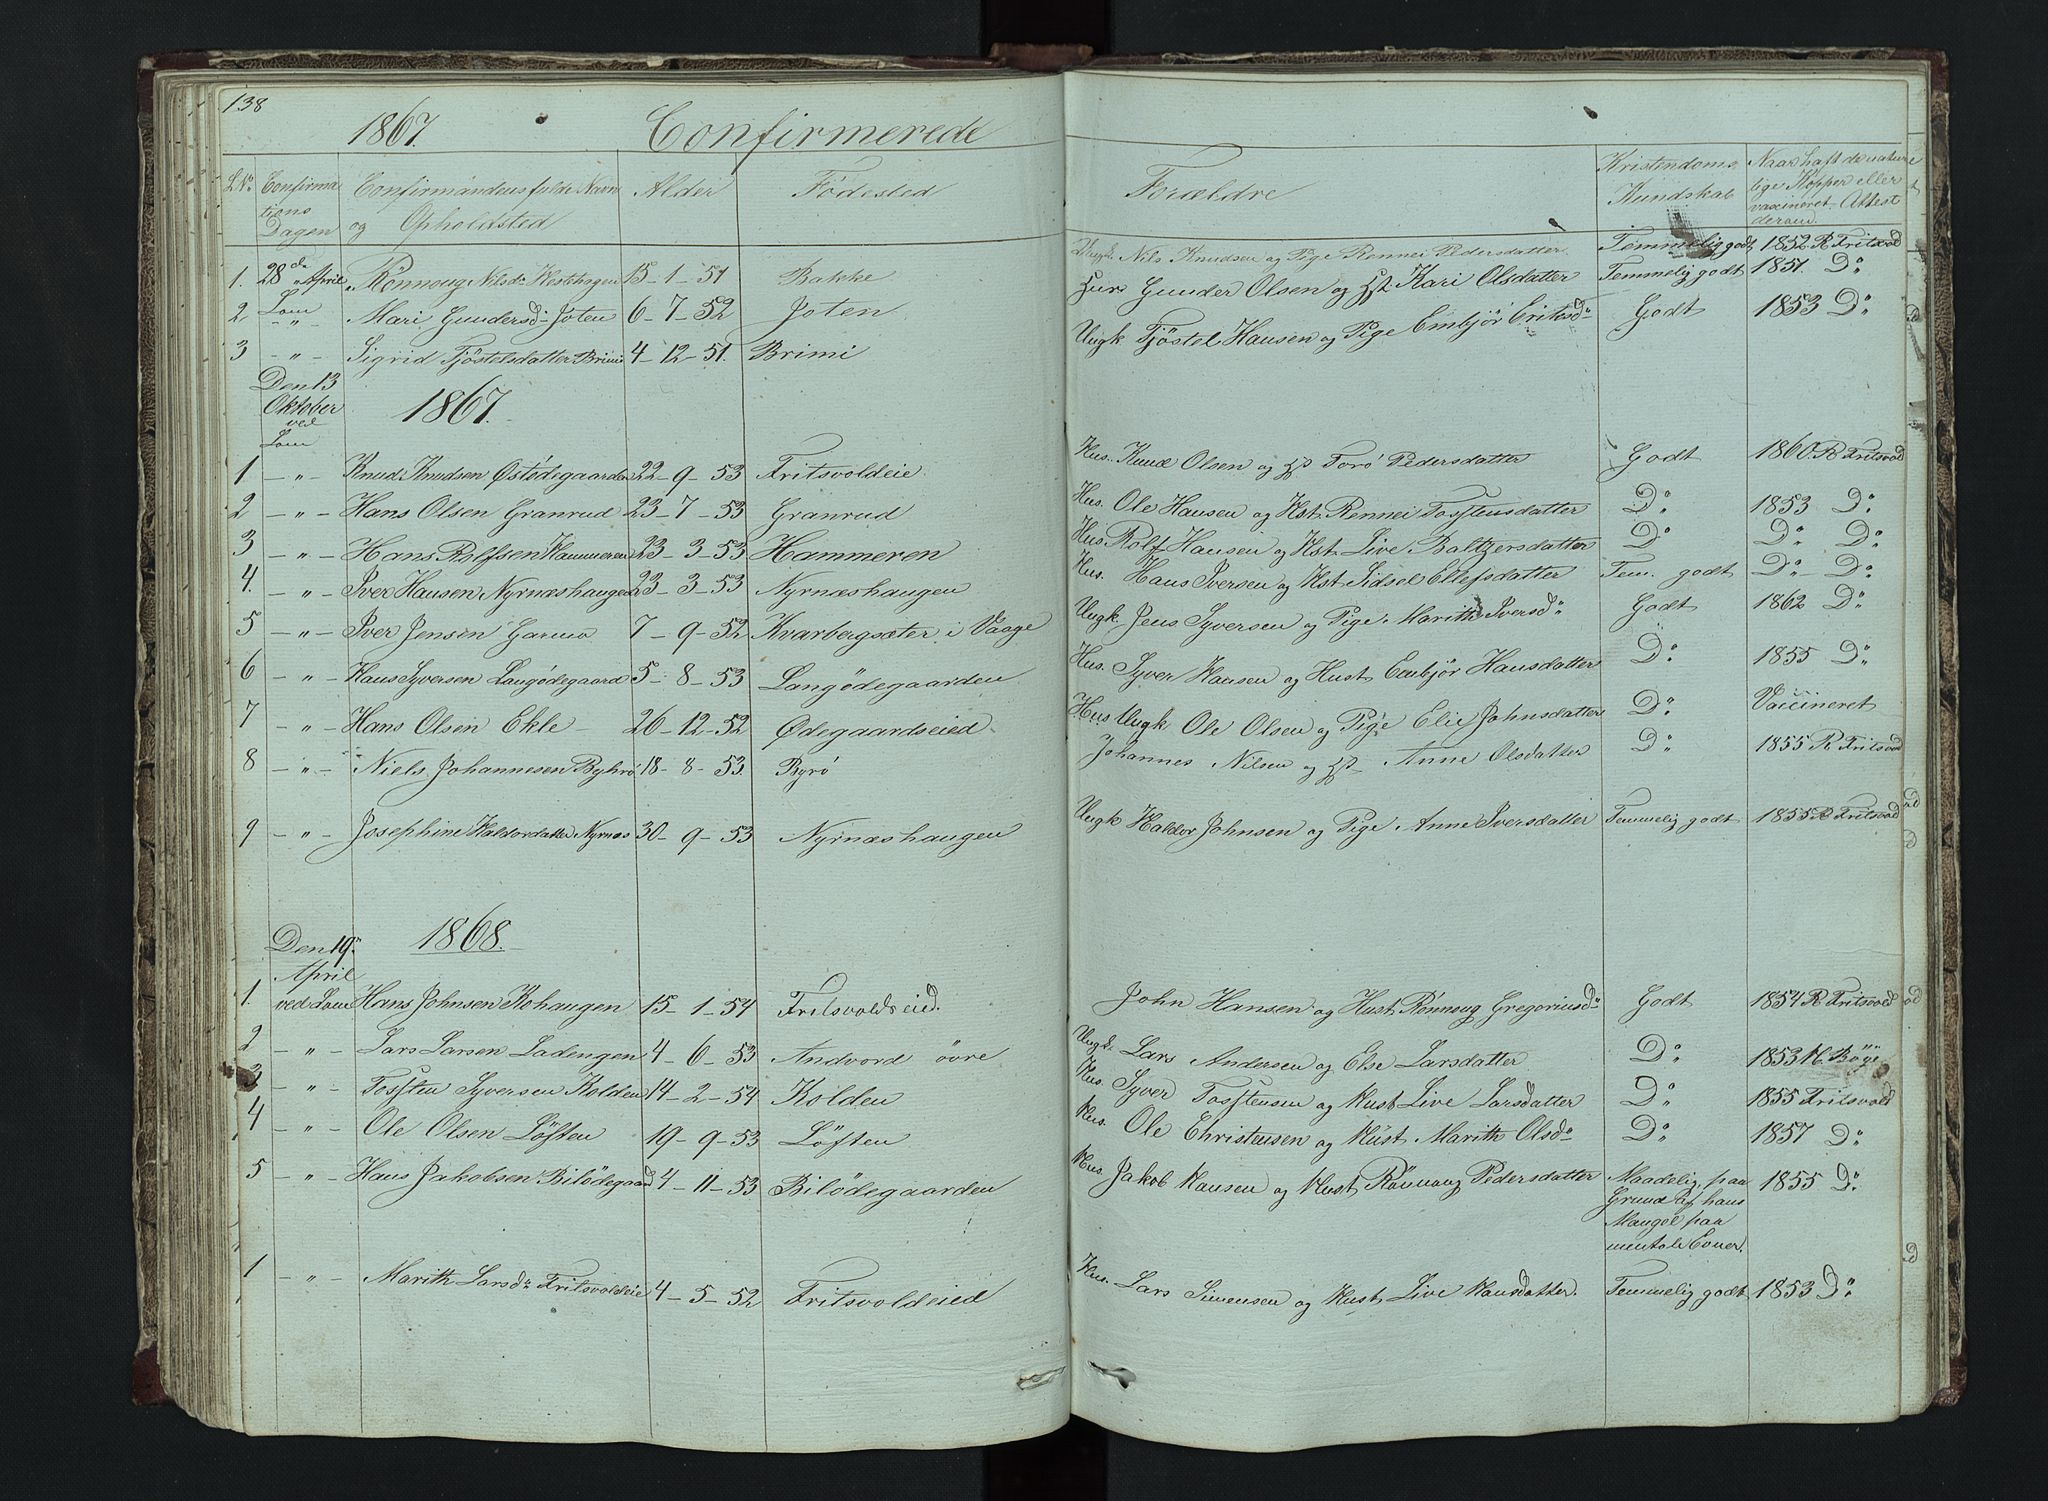 138
1867. Confirmerede
LNo. Confirmations Dagen Confirmandens fulde Navn og Opholdsted Alder Födested Forældre Kristendoms Kundskab Naar haft de naturlige Kopper eller vaccineret. Attest derom.
1. 28de April Rönnoug Nilsd. Hestehagen 15-1-51 Bakke Ungk. Nils Knudsen og Pige Ronnei Pedersdatter Temmelig godt 1852 R Fritsvold
2. Lom Mari Gundersd. Joten 6-7-52 Joten Gunder Olsen og Kari Olsdatter Temmelig godt 1851. Do.
3 -"- Sigrid Tjöstelsdatter Brimi 4-12-51. Brimi Ungk Tjöstel Hansen og Pige Embjör Eriksdr. Godt 1853 Do.
Den 13 Oktober ved Lom 1867.
1 -"- Knud Knudsen Östödegaarden 22-9-53 Fritsvoldeie Hus. Knud Olsen og Torö Pedersdatter Godt 1860 R Fritsvold
2 -"- Hans Olsen Granrud 23-7-53 Granrud Hus. Ole Hansen og Hst Rennei Tostensdatter Do. 1853 Do.
3 -"- Hans Rolfsen Hammeren 23-3-53 Hammeren Hus. Rolf Hansen og Hst Live Baltzersdatter Do. Do. Do.
4. -"- Iver Hansen Nyrnæshaugen 23-3-53 Nyrnæshaugen Hus. Hans Iversen og Hst Sidsel Ellefsdatter Tem. godt Do. Do.
5 -"- Iver Jensen Garmo 7-9-52 Kvarbergsæter i Vaage Ungk. Jens Syversen og Pige Marith Iversd. Godt 1862 Do.
6 -"- Hans Syversen Langödegaard 5-8-53 Langödegaarden Hus. Syver Hansen og Hust Embjör Hansdatter Do. 1855 Do.
7 -"- Hans Olsen Ekle 26-12-52 Ødegaardseied Hus Ungk Ole Olsen og Pige Elie Johnsdatter Do. Vaccineret
8 -"- Niels Johannesen Byhrö 18-8-53 Byrö Johannes Nilsen og Anne Olsdatter Do. 1855 R Fritsvold
9 -"- Josephine Haldordatter Nyrnæs 30-9-53 Nyrnæshaugen Ungk Haldor Johnsen og Pige Anne Iversdatter Temmelig godt 1855 R Fritsvold
Den 19. April ved Lom 1868.
1. Hans Johnsen Kohaugen 15-1-54 Fritsvoldseied. John Hansen og Hust Rönnoug Gregoriusdr. Godt 1854 R Fritsvold
2 -"- Lars Larsen Ladengen 4-6-53 Andvord övre Ungk. Lars Andersen og Else Larsdatter Do. 1853
3 -"- Tosten Syversen Kolden 14-2-54 Kolden Hus. Syver Tostensen og Hust Live Larsdatter Do. 1855 Fritsvold
4 -"- Ole Olsen Löften 19-9-53 Löften Hus. Ole Christensen og Hust Marith Olsdr. Do. 1857 Do.
5 -"- Hans Jakobsen Bilödegaard 4-11-53 Bilödegaarden Hus. Jakob Hansen og Hust Rönnaug Pedersdatter Maadelig, paa Grund af hans Mangel paa mentale Evner. 1855 Do.
1 -"- Marith Larsdr. Fritsvoldeie 4-5-52 Fritsvoldeied Hus. Lars Simensen og Hust Live Hansdatter. Temmelig godt 1853 Do.